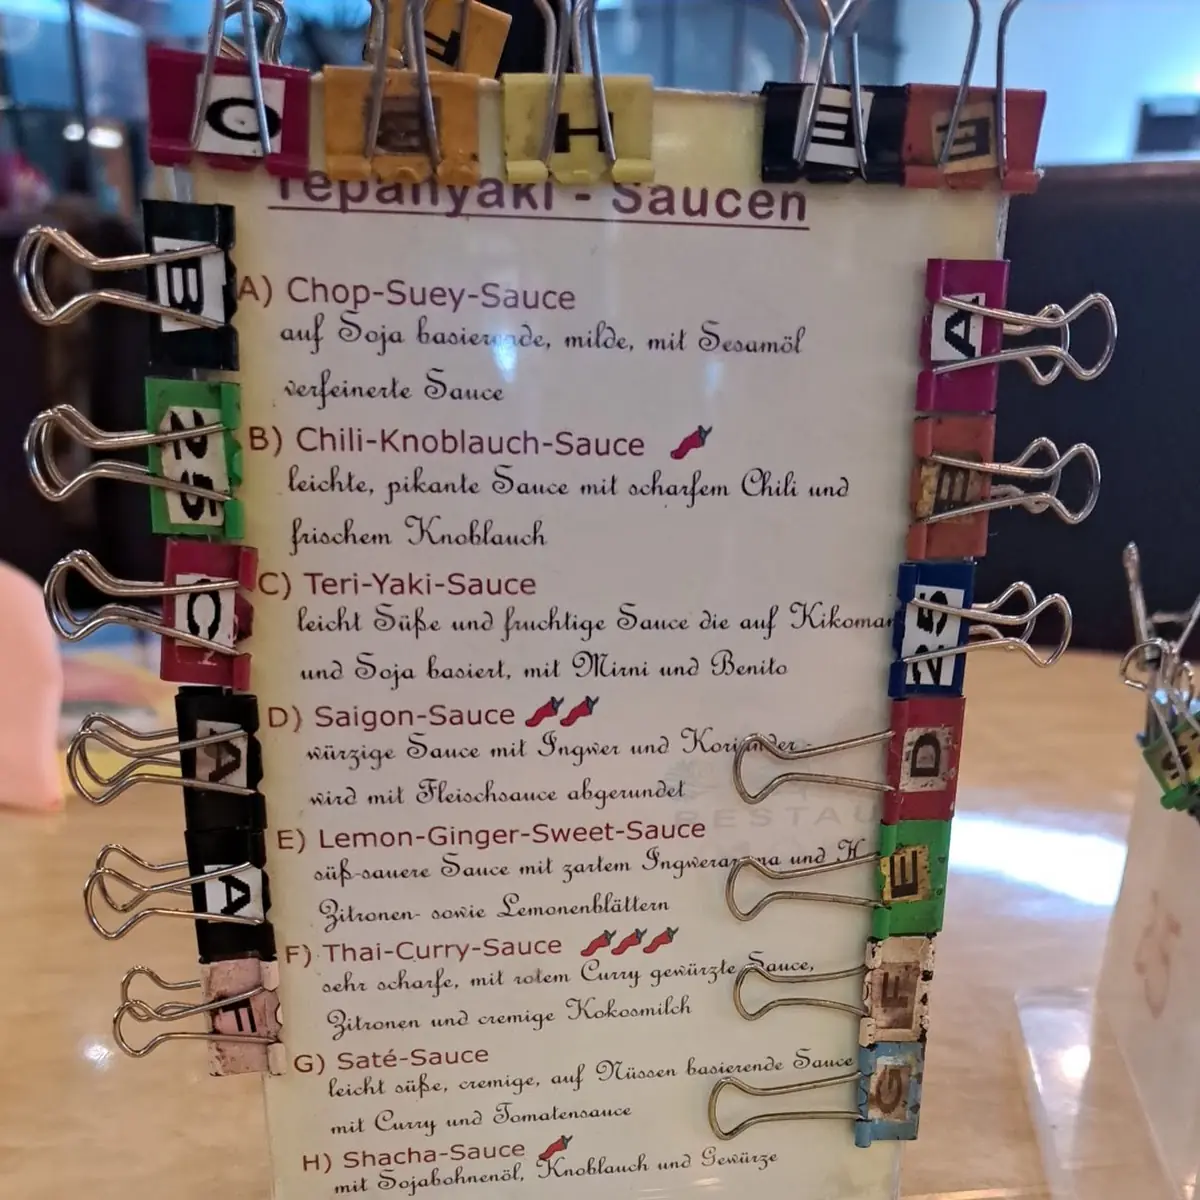 O
H
E
E
Tepanyaki - Saucen
B
A
A) Chop-Suey-Sauce
auf Soja basierende, milde, mit Sesamöl
verfeinerte Sauce
25
B
B) Chili-Knoblauch-Sauce
leichte, pikante Sauce mit scharfem Chili und
frischem Knoblauch
C
25
C) Teri-Yaki-Sauce
leicht Süße und fruchtige Sauce die auf Kikoman
und Soja basiert, mit Mirni und Benito
A
D
D) Saigon-Sauce
würzige Sauce mit Ingwer und Koriander -
wird mit Fleischsauce abgerundet
RESTAU
A
E
E) Lemon-Ginger-Sweet-Sauce
süß-sauere Sauce mit zartem Ingweraroma und H
Zitronen- sowie Lemonenblättern
F
F
F) Thai-Curry-Sauce
sehr scharfe, mit rotem Curry gewürzte Sauce,
Zitronen und cremige Kokosmilch
G
G) Saté-Sauce
leicht süße, cremige, auf Nüssen basierende Sauce
mit Curry und Tomatensauce
H) Shacha-Sauce
mit Sojabohnenöl, Knoblauch und Gewürze